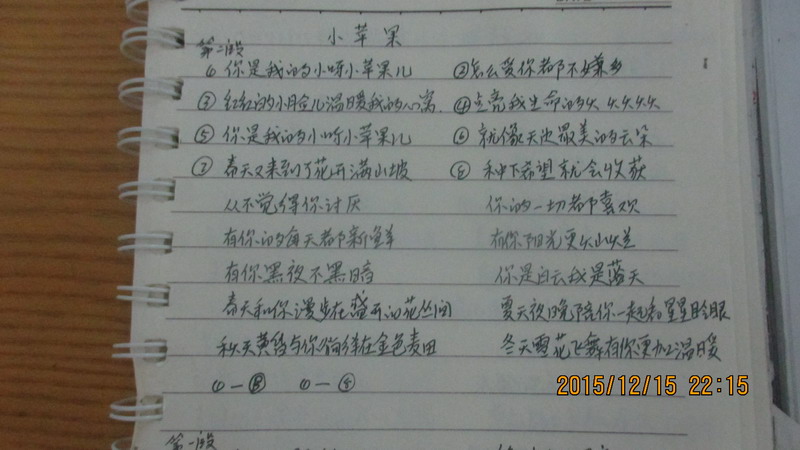 小苹果
第二段
① 你是我的小呀小苹果儿 ② 怎么爱你都不嫌多
③ 红红的小脸儿温暖我的心窝 ④ 点亮我生命的火 火火火火
⑤ 你是我的小呀小苹果儿 ⑥ 就像天边最美的云朵
⑦ 春天又来到了花开满山坡 ⑧ 种下希望就会收获
从不觉得你讨厌 你的一切都喜欢
有你的每天都新鲜 有你阳光更灿烂
有你黑夜不黑暗 你是白云我是蓝天
春天和你漫步在盛开的花丛间 夏天夜晚陪你一起看星星眨眼
秋天黄昏与你徜徉在金色麦田 冬天雪花飞舞有你更加温暖
①—⑧ ①—④
2015/12/15 22:15
第一段